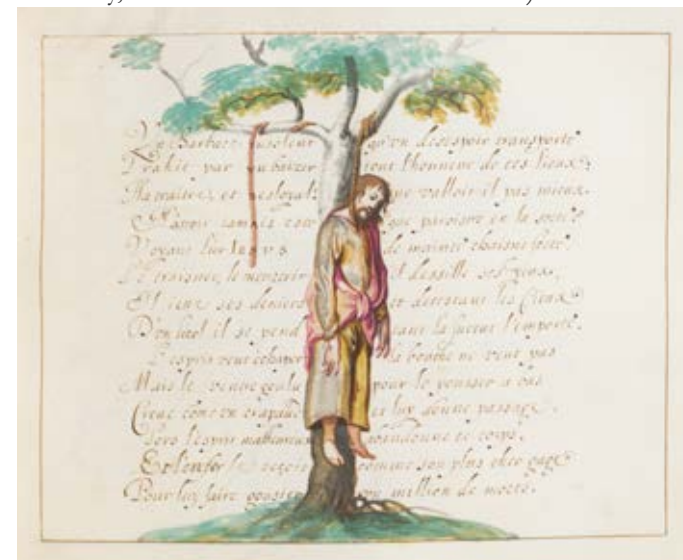 Un Barbare qu'un desespoir transporte
Trahit par un baizer tout l'honneur de ces lieux
Ha traitre, et desloyal! ne valloit il pas mieux
iamais esté que paroistre en la sorte
Voyant lier Iesus de mainte chaisne forte
Le traisner, le meurtrir dessille ses yeux,
Et ses deniers et detestant les Cieux
D'un licol il se pend tant la fureur l'emporte.
L'esprit veut échaper la bouche ne veut pas
Mais le ventre goulu pour le pousser a bas
Creve comme un crapaud et luy donne passage.
Lors l'esprit malheureux abandonne ce corps,
Et l'enfer le reçoit comme son plus cher gage
Pour luy faire gouster un million de morts.